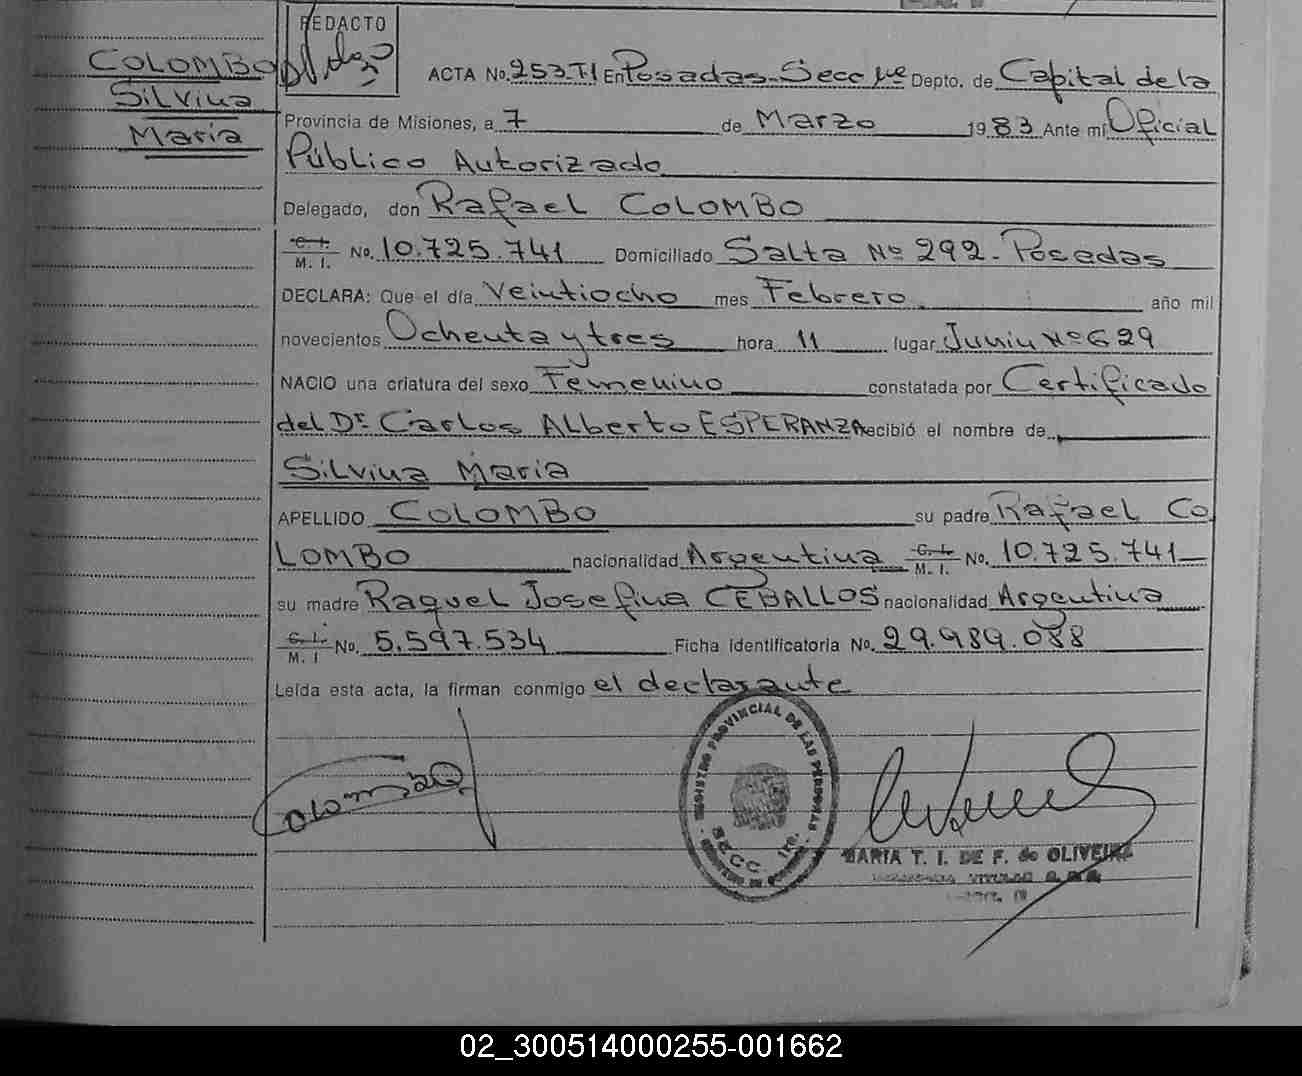 COLOMBO
Silvina
Maria
REDACTO
ACTA No. 253-T1 En Posadas-Secc 1ra Depto. de Capital de la
Provincia de Misiones, a 7 de Marzo 1983 Ante mí Oficial
Público Autorizado
Delegado, don Rafael COLOMBO
C. I. M. I. No. 10.725.741 Domiciliado Salta Nº 292 - Posadas
DECLARA: Que el día Veintiocho mes Febrero año mil
novecientos Ochenta y tres hora 11 lugar Junin Nº 629
NACIO una criatura del sexo Femenino constatada por Certificado
del Dr. Carlos Alberto ESPERANZA Recibió el nombre de
Silvina Maria
APELLIDO COLOMBO su padre Rafael CO
LOMBO nacionalidad Argentina C. I. M. I. No. 10.725.741
su madre Raquel Josefina CEBALLOS nacionalidad Argentina
C. I. M. I No. 5.597.534 Ficha identificatoria No. 29.989.088
Leída esta acta, la firman conmigo el declarante
Colombo
REGISTRO PROVINCIAL DE LAS PERSONAS
SECC 1ra.
MARIA T. I. DE F. de OLIVEIRA
02_300514000255-001662